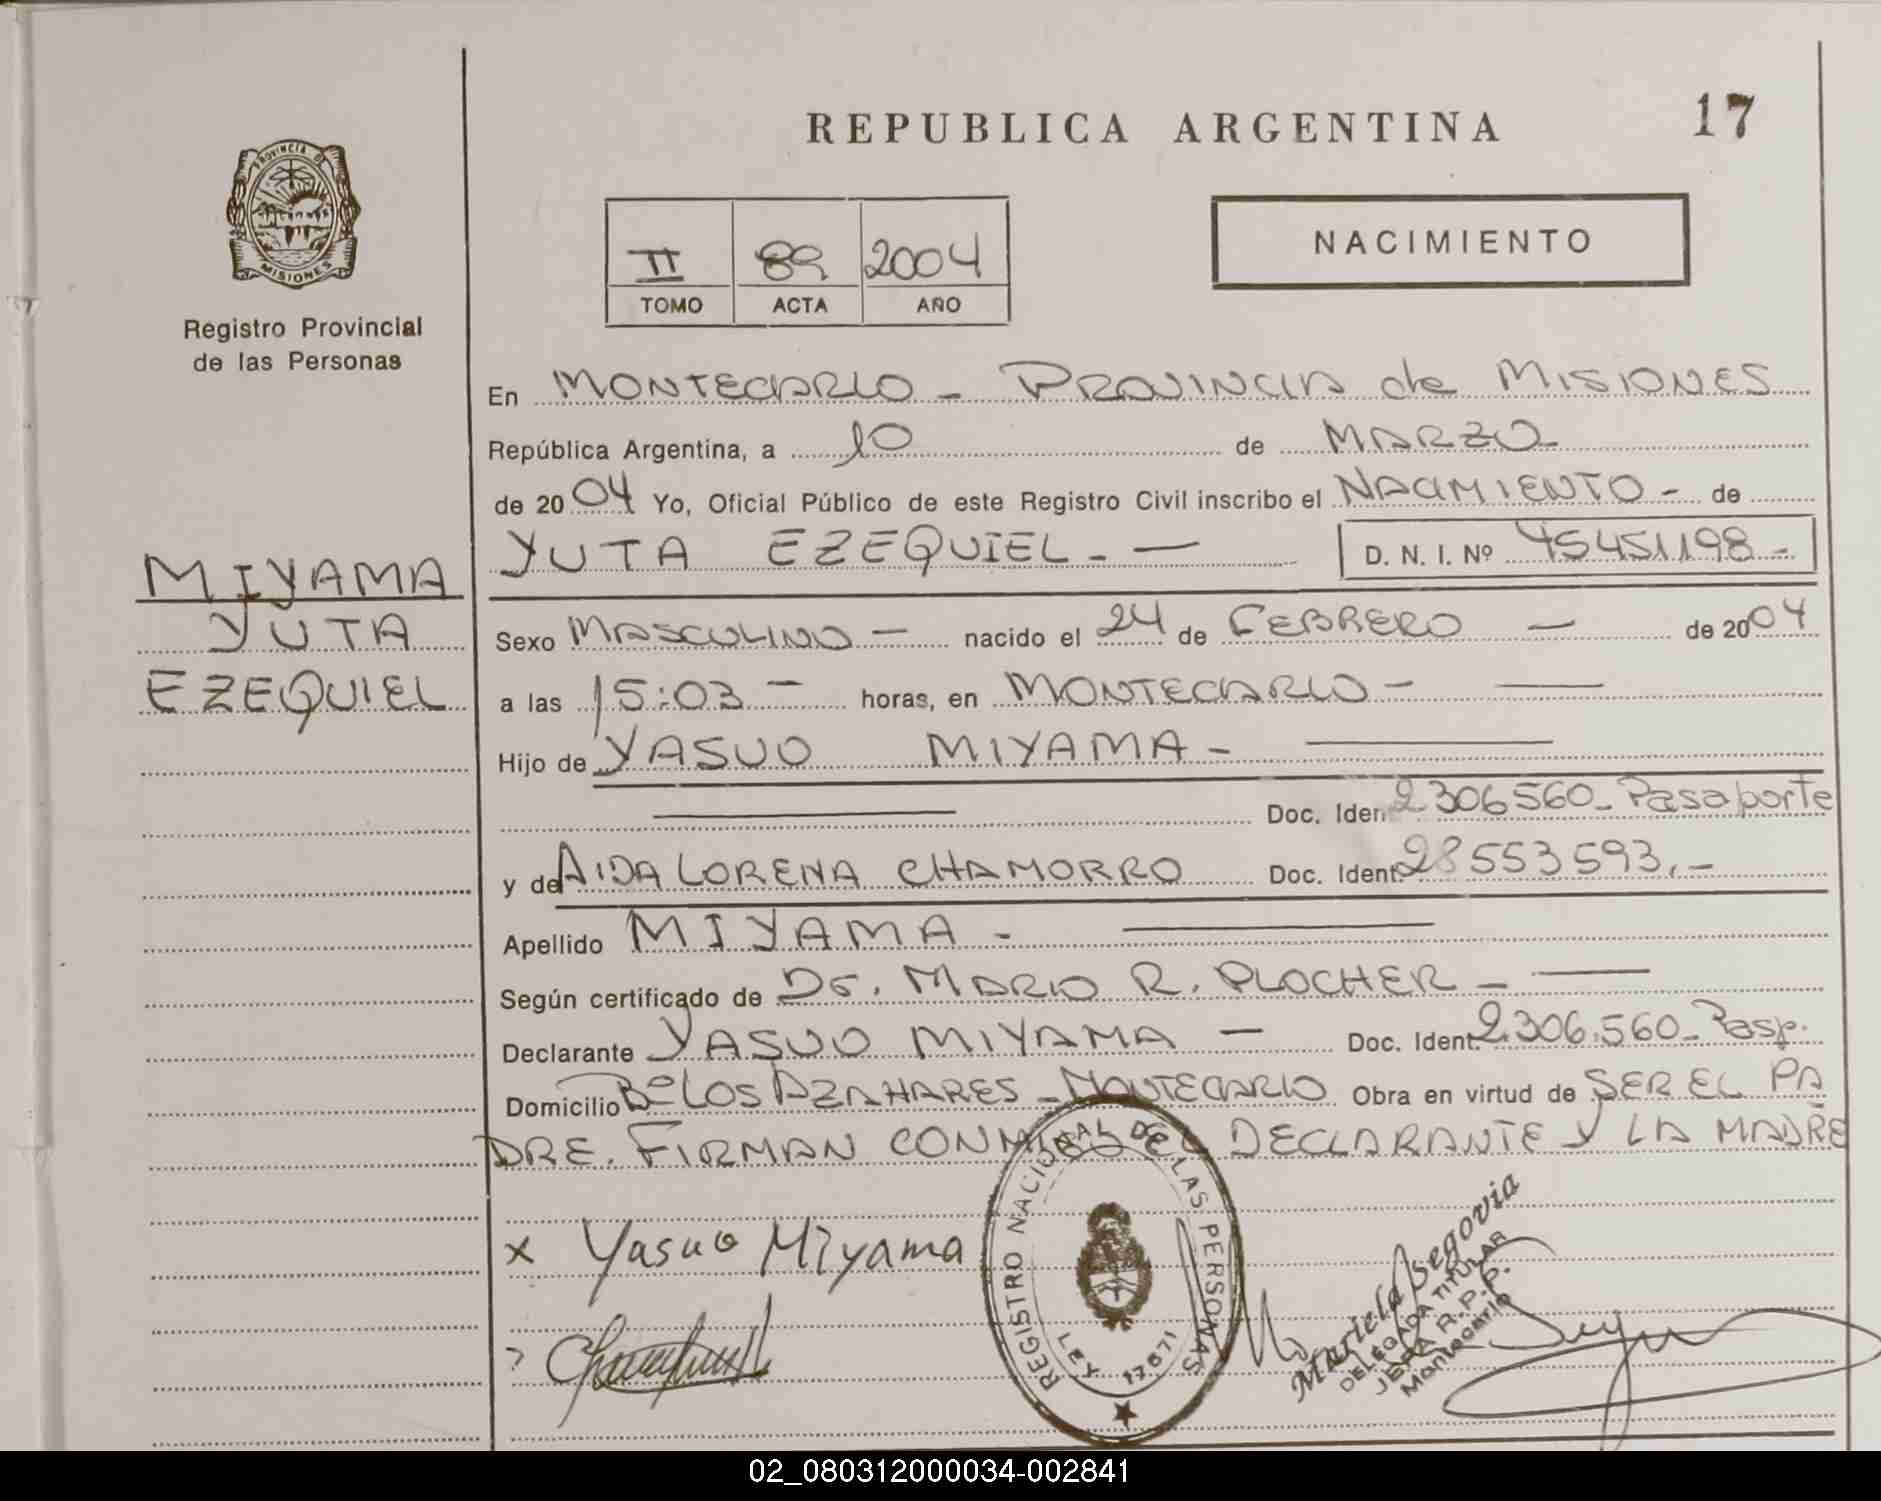 REPUBLICA ARGENTINA
17
PROVINCIA DE
MISIONES
Registro Provincial
de las Personas
II 89 2004
TOMO ACTA AÑO
NACIMIENTO
En MONTECARLO - PROVINCIA de MISIONES
República Argentina, a 10 de MARZO-
de 2004 Yo, Oficial Público de este Registro Civil inscribo el NACIMIENTO - de
YUTA EZEQUIEL - — D. N. I. Nº 45451198 -
MIYAMA
YUTA
EZEQUIEL
Sexo MASCULINO — nacido el 24 de FEBRERO — de 2004
a las 15:03 — horas, en MONTECARLO - —
Hijo de YASUO MIYAMA - —
— Doc. Ident. 2306560_ Pasaporte
y de AIDA LORENA CHAMORRO Doc. Ident. 28553593.-
Apellido MIYAMA - —
Según certificado de Dr. MARIO R. PLOCHER - —
Declarante YASUO MIYAMA — Doc. Ident. 2.306.560_ Pasp.
Domicilio Bº LOS AZAHARES - MONTECARLO Obra en virtud de SER EL PA
DRE. FIRMAN CONMIGO EL DECLARANTE Y LA MADRE
x Yasuo Miyama
REGISTRO NACIONAL DE LAS PERSONAS
LEY 17671
Mariela Segovia
DELEGADA TITULAR
R.P.P.
Montecarlo
02_080312000034-002841